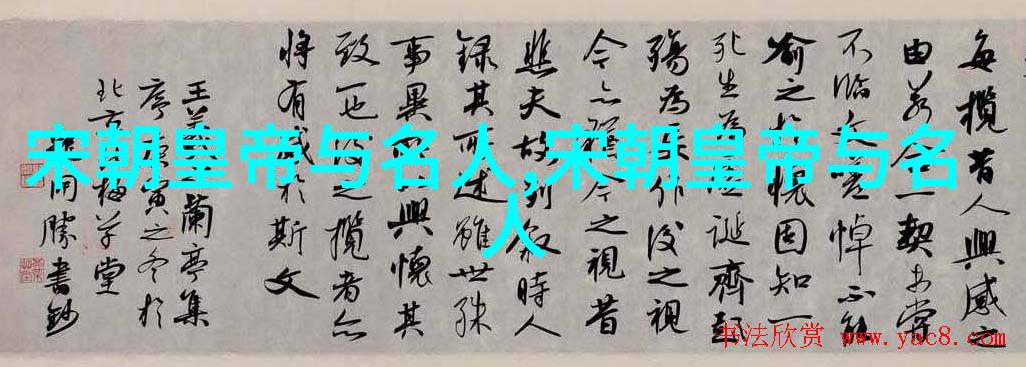 每攬昔人興感之
由若合一契未嘗
不臨文嗟悼不能
喻之於懷固知一
死生為虛誕齊彭
殤為妄作後之視
今亦猶今之視昔
悲夫故列敘時人
錄其所述雖世殊
事異所以興懷其
致一也後之攬者亦
將有感於斯文
王羲之蘭亭集
序寅之冬於
北京堂
書鈔
宋朝皇帝与名人,宋朝皇帝与名
人
书法欣赏 www.yac8.com